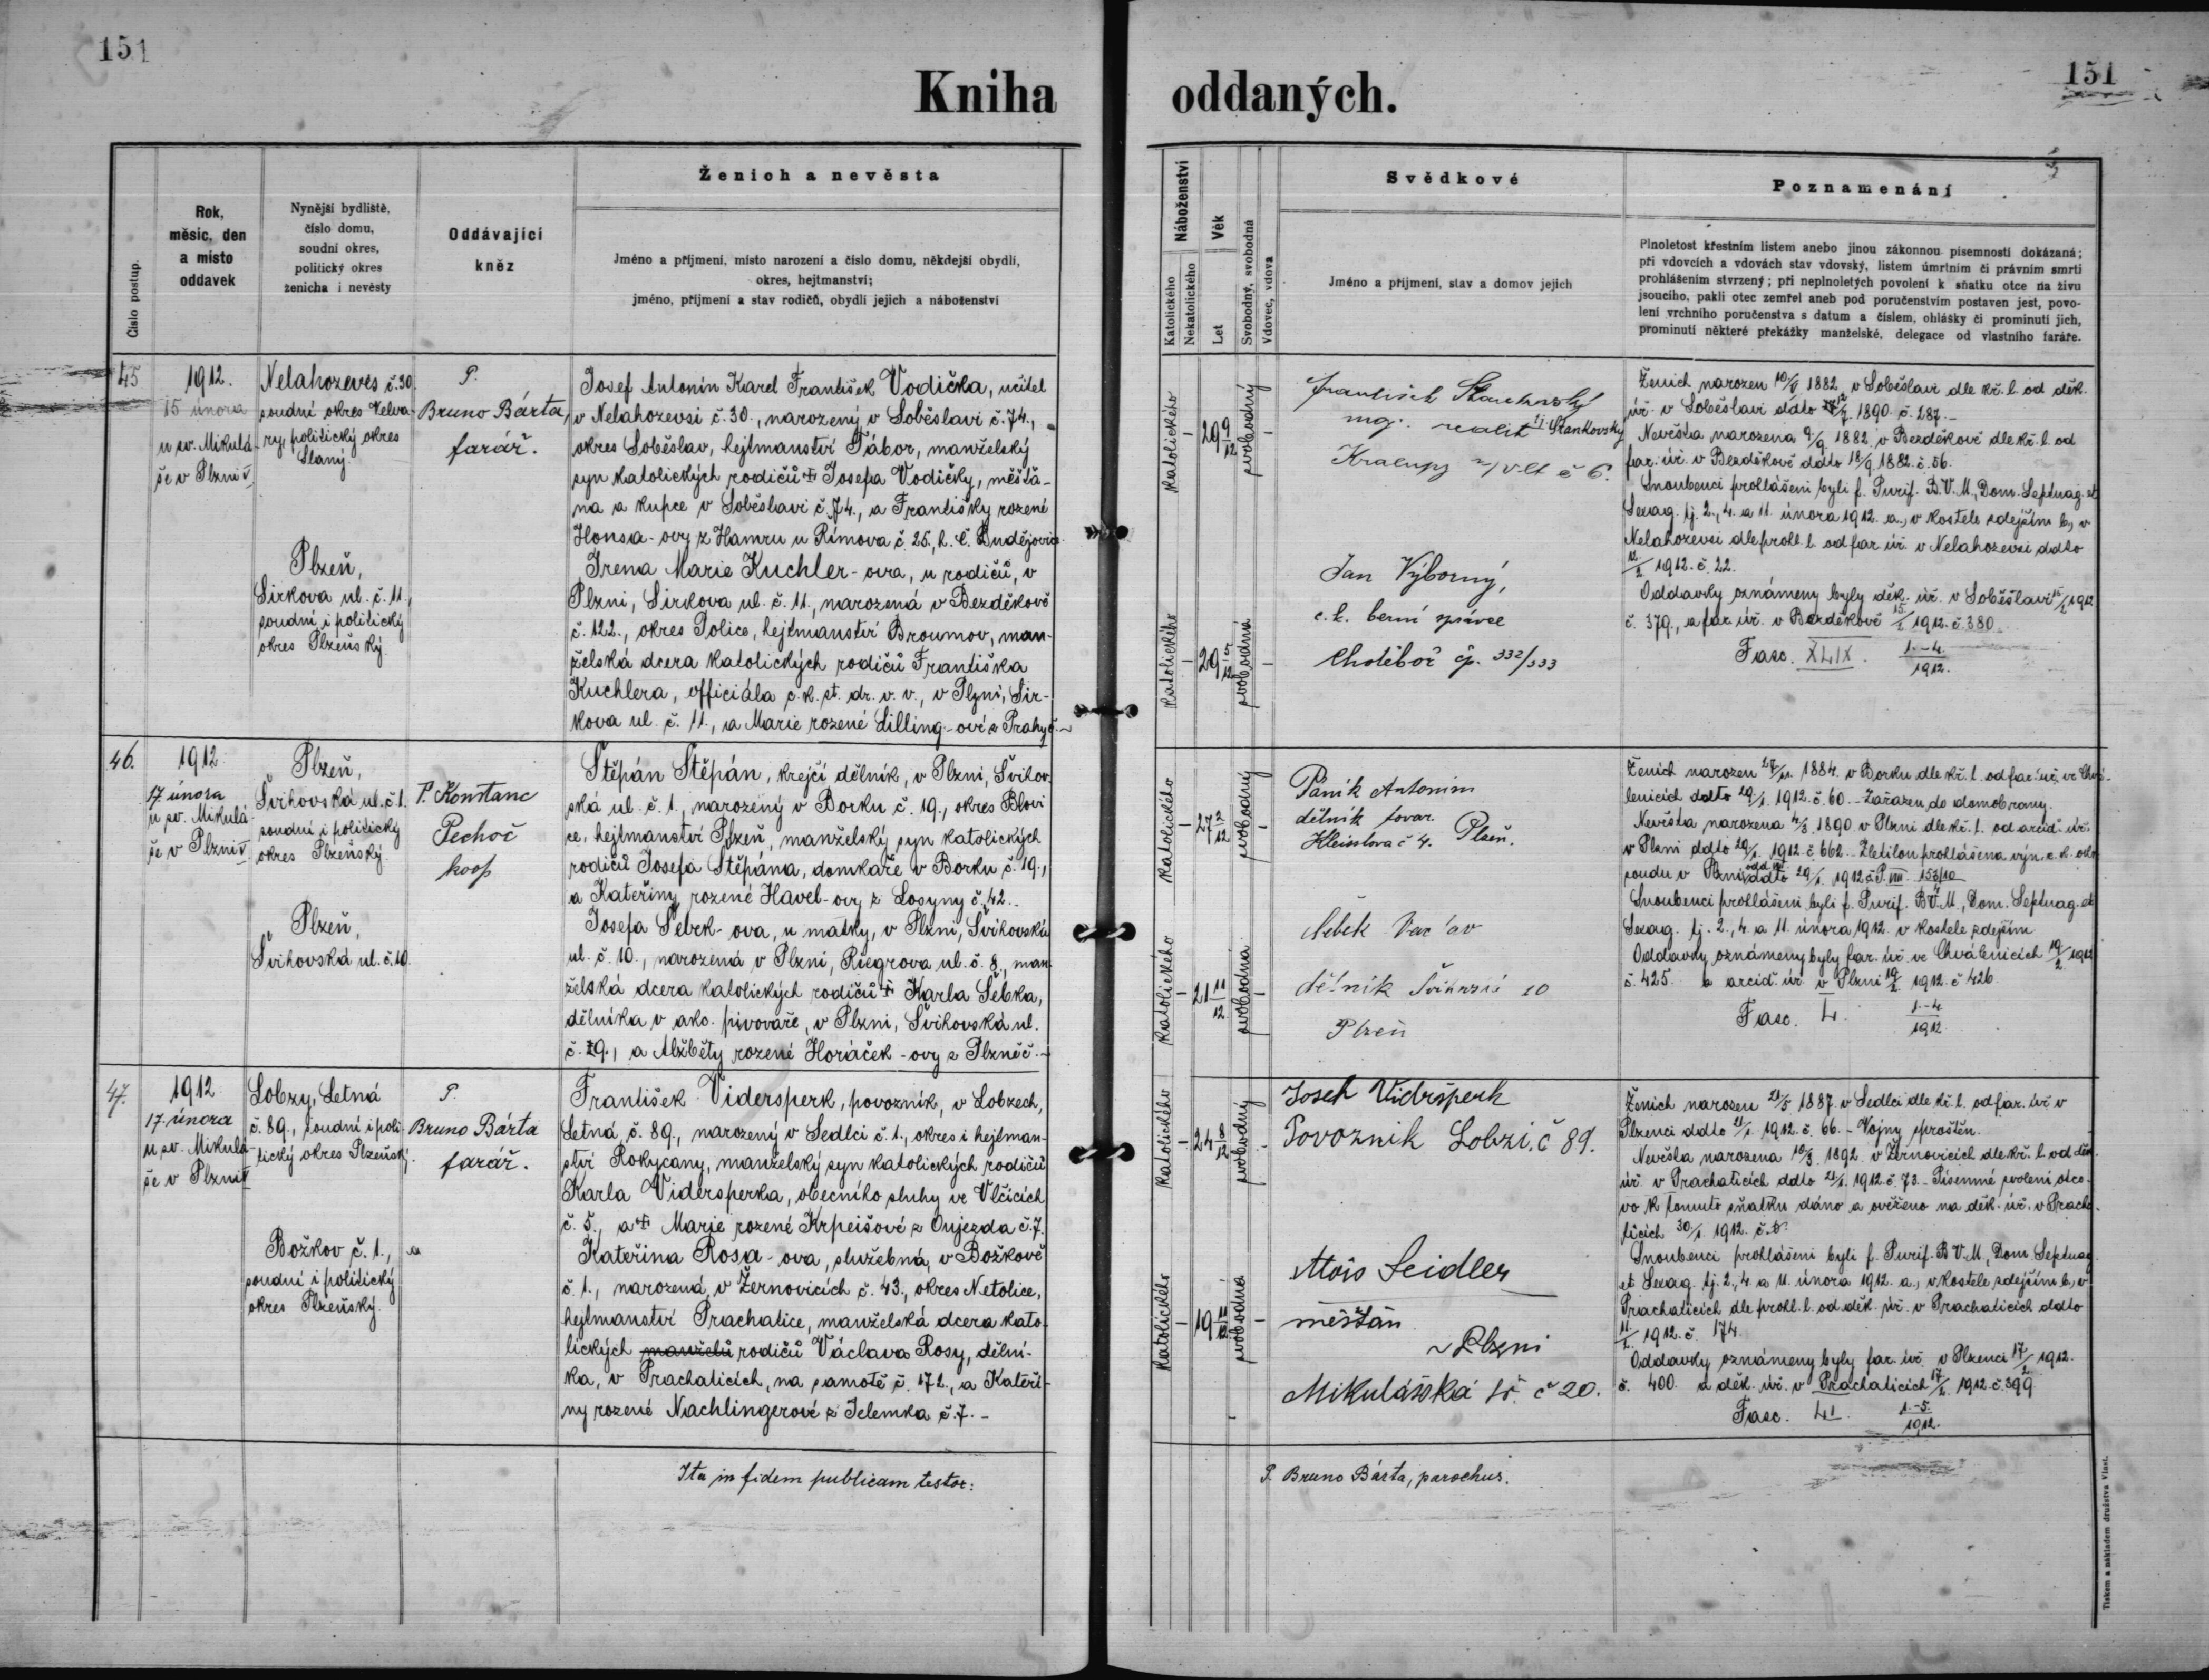 151
151
Kniha oddaných.
Číslo postup.
Rok,
měsíc, den
a místo
oddavek
Nynější bydliště,
číslo domu,
soudní okres,
politický okres
ženicha i nevěsty
Oddávající
kněz
Ženich a nevěsta
Jméno a příjmení, místo narození a číslo domu, někdejší obydlí,
okres, hejtmanství;
jméno, příjmení a stav rodičů, obydlí jejich a náboženství
Náboženství
Katolického
Nekatolického
Věk
Let
Svobodný, svobodná
Vdovec, vdova
Svědkové
Jméno a příjmení, stav a domov jejich
Poznamenání
Plnoletost křestním listem anebo jinou zákonnou písemností dokázaná;
při vdovcích a vdovách stav vdovský, listem úmrtním či právním smrti
prohlášením stvrzený; při neplnoletých povolení k sňatku otce na živu
jsoucího, pakli otec zemřel aneb pod poručenstvím postaven jest, povo-
lení vrchního poručenstva s datum a číslem, ohlášky či prominutí jich,
prominutí některé překážky manželské, delegace od vlastního faráře.
45
1912.
15 února
u sv. Mikulá-
še v Plzni
Nelahozeves č. 30
soudní okres Velva-
ry, politický okres
Slaný.
Plzeň,
Sirkova ul. č. 11,
soudní i politický
okres Plzeňský
P.
Bruno Bárta,
farář.
Josef Antonín Karel František Vodička, učitel
v Nelahozevsi č. 30., narozený v Soběslavi č. 74.,
okres Soběslav, hejtmanství Tábor, manželský
syn katolických rodičů † Josefa Vodičky, měšťa-
na a kupce v Soběslavi č. 74., a Františky rozené
Honsa-ovy z Hamru u Římova č. 25., h. Č. Budějovice.
Irena Marie Kuchler-ova, u rodičů, v
Plzni, Sirkova ul. č. 11., narozená v Bezděkově
č. 122., okres Police, hejtmanství Broumov, man-
želská dcera katolických rodičů Františka
Kuchlera, officiála c. k. st. dr. v. v., v Plzni, Sir-
kova ul. č. 11., a Marie rozené Lilling-ové z Prahy č.
Katolického
29 9/12
svobodný
Katolického
29 5/12
svobodná
maj. realit
Stankovský
Kralupy n/Vlt č 6.
Jan Výborný,
c. k. berní správce
Chotěboř čp. 332/333
Ženich narozen 10/5 1882 v Soběslavi dle kř. l. od děk.
úř. v Soběslavi ddto 1890. č. 287.-
Nevěsta narozena 9/9 1882. v Bezděkově dle kř. l. od
far. úř. v Bezděkově ddto 18/9 1882. č. 56.
Snoubenci prohlášeni byli f. Purif. B.V.M., Dom. Septuag. et
Sexag. tj. 2., 4. a 11. února 1912. a., v kostele zdejším b., v
Nelahozevsi dle prohl. l. od far. úř. v Nelahozevsi ddto
12/2 1912. č. 22.
Oddavky oznámeny byly děk. úř. v Soběslavi 15/2 1912
č. 379., a far. úř. v Bezděkově 15/2 1912. č. 380.
Fasc. XLIX. 1.-4/1912.
46.
1912
17 února
u sv. Mikulá-
še v Plzni
Plzeň,
Švihovská ul. č. 1.
soudní i politický
okres Plzeňský.
Plzeň,
Švihovská ul. č. 10.
P. Konstanc
Pechoč
koop
Štěpán Štěpán, krejčí dělník, v Plzni, Švihov-
ská ul. č. 1., narozený v Borku č. 19., okres Blovi-
ce, hejtmanství Plzeň, manželský syn katolických
rodičů Josefa Štěpána, domkaře v Borku č. 19.,
a Kateřiny rozené Havel-ovy z Losyny č. 42..
Josefa Šebek-ova, u matky, v Plzni, Švihovská
ul. č. 10., narozená v Plzni, Riegrova ul. č. 8, man-
želská dcera katolických rodičů † Karla Šebka,
dělníka v akc. pivovaře, v Plzni, Švihovská ul.
č. 29., a Alžběty rozené Horáček-ovy z Plzně č.-
Katolického
27 2/12
svobodný
Katolického
21 11/12
svobodna
Páník Antonin
dělník tovar.
Kleistova č 4. Plzeň.
Šebek Václav
dělník Švihovská 10
Plzeň
Ženich narozen 27/11 1884. v Borku dle kř. l. od far. úř. ve Chvá-
lenicích ddto 29/1 1912. č. 60.- Zařazen do domobrany.
Nevěsta narozena 4/3 1890 v Plzni dle kř. l. od arcid. úř.
v Plzni ddto 29/1 1912. č. 662.- Zletilou prohlášena výn. c. k. okr.
soudu v Plzni odd. ddto 29/1 1912 č. P. VIII 153/10
Snoubenci prohlášeni byli f. Purif. B.V.M., Dom. Septuag. et
Sexag. tj. 2., 4 a 11. února 1912. v kostele zdejším
Oddavky oznámeny byly far. úř. ve Chválenicích 19/2 1912
č. 425. a arcid. úř. v Plzni 19/2 1912. č 426
Fasc. L. 1.-4/1912
47.
1912
17. února
u sv. Mikulá-
še v Plzni
Lobzy, Letná
č. 89., soudní i poli-
tický okres Plzeňský.
Božkov č. 1.,
soudní i politický
okres Plzeňský.
P.
Bruno Bárta
farář.
František Vidersperk, povozník, v Lobzech,
Letná, č. 89., narozený v Sedlci č. 1., okres i hejtman-
ství Rokycany, manželský syn katolických rodičů
Karla Vidersperka, obecního sluhy ve Vlčicích
č. 5., a † Marie rozené Krpeišové z Oujezda č. 7.
Kateřina Rosa-ova, služebná, v Božkově
č. 1., narozená v Žernovicích č. 43., okres Netolice,
hejtmanství Prachatice, manželská dcera kato-
lických manželů rodičů Václava Rosy, dělní-
ka, v Prachaticích, na samotě č. 172., a Kateři-
ny rozené Nachlingerové z Jelemka č. 7.-
Katolického
24 8/12
svobodný
Katolického
19 11/12
svobodná
Josef Vidršperk
Povoznik Lobzi. č 89.
Alois Seidler
měšťan
v Plzni
Mikulášská tř. č 20.
Ženich narozen 21/5 1887. v Sedlci dle kř. l. od far. úř. v
Plzenci ddto 21/1 1912. č. 66.- Vojny sproštěn.
Nevěsta narozena 10/3 1892. v Žernovicích dle kř. l. od děk.
úř. v Prachaticích ddto 21/1 1912. č. 73.- Písemné svolení otco-
vo k tomuto sňatku dáno a ověřeno na děk. úř. v Pracha-
ticích 30/1 1912.
Snoubenci prohlášeni byli f. Purif. B V. M, Dom. Septuag
et Sexag. tj. 2., 4 a 11. února 1912. a., v kostele zdejším b., v
Prachaticích dle prohl. l. od děk. úř. v Prachaticích ddto
11/2 1912. č. 174.
Oddavky oznámeny byly far. úř. v Plzenci 17/2 1912.
č. 400 a děk. úř. v Prachaticích 17/2 1912. č. 399
Fasc. LI. 1.-5./1912.
Ita in fidem publicam testor:
P. Bruno Bárta, parochus.
Tiskem a nákladem družstva Vlast.